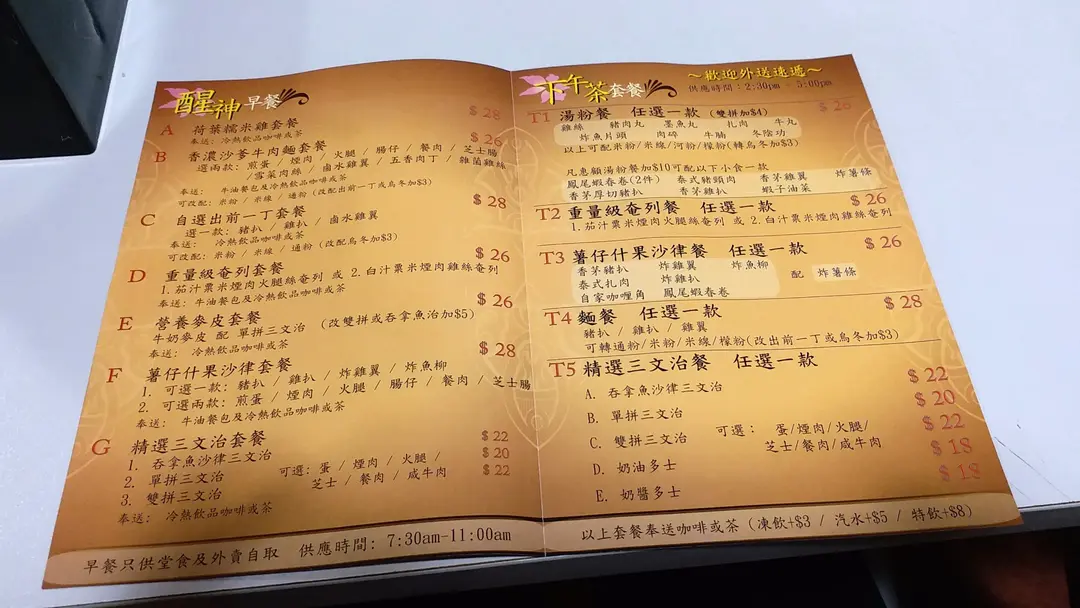 醒神早餐
A 荷葉糯米雞套餐 $28
奉送：冷熱飲品咖啡或茶
B 香濃沙爹牛肉麵套餐 $26
選兩款：煎蛋 / 煙肉 / 火腿 / 腸仔 / 餐肉 / 芝士腸
/雪菜肉絲 / 鹵水雞翼 / 五香肉丁 / 雜菌雞絲
奉送： 牛油餐包及冷熱飲品咖啡或茶
可改配：米粉 / 米線 / 通粉 (改配出前一丁或烏冬加$3)
C 自選出前一丁套餐 $28
選一款：豬扒 / 雞扒 / 鹵水雞翼
奉送： 冷熱飲品咖啡或茶
可改配：米粉 / 米線 / 通粉 (改配烏冬加$3)
D 重量級奄列套餐 $26
1.茄汁粟米煙肉火腿絲奄列 或 2.白汁粟米煙肉雞絲奄列
奉送：牛油餐包及冷熱飲品咖啡或茶
E 營養麥皮套餐 $26
牛奶麥皮 配 單拼三文治 (改雙拼或吞拿魚治加$5)
奉送： 冷熱飲品咖啡或茶
F 薯仔什果沙律套餐 $28
1. 可選一款：豬扒 / 雞扒 / 炸雞翼 / 炸魚柳
2. 可選兩款：煎蛋 / 煙肉 / 火腿 / 腸仔 / 餐肉 / 芝士腸
奉送： 牛油餐包及冷熱飲品咖啡或茶
G 精選三文治套餐
1. 吞拿魚沙律三文治 $22
2. 單拼三文治 可選：蛋 / 煙肉 / 火腿 / $20
3. 雙拼三文治 芝士 / 餐肉 / 咸牛肉 $22
奉送： 冷熱飲品咖啡或茶
早餐只供堂食及外賣自取 供應時間：7:30am-11:00am
下午茶套餐
～歡迎外送速遞～
供應時間：2:30pm - 5:00pm
T1 湯粉餐 任選一款 (雙拼加$4) $26
雞絲 豬肉丸 墨魚丸 扎肉 牛丸
炸魚片頭 肉碎 牛腩 冬陰功
以上可配米粉/米線/河粉/檬粉(轉烏冬加$3)
凡惠顧湯粉餐加$10可配以下小食一款
鳳尾蝦春卷(2件) 泰式豬頸肉 香茅雞翼 炸薯條
香茅厚切豬扒 香茅雞扒 蝦子油菜
T2 重量級奄列餐 任選一款 $26
1.茄汁粟米煙肉火腿絲奄列 或 2.白汁粟米煙肉雞絲奄列
T3 薯仔什果沙律餐 任選一款 $26
香茅豬扒 炸雞翼 炸魚柳
泰式扎肉 炸雞扒 配 炸薯條
自家咖喱角 鳳尾蝦春卷
T4 麵餐 任選一款 $28
豬扒 / 雞扒 / 雞翼
可轉通粉/米粉/米線/檬粉(改出前一丁或烏冬加$3)
T5 精選三文治餐 任選一款
A. 吞拿魚沙律三文治 $22
B. 單拼三文治 $20
C. 雙拼三文治 可選： 蛋/煙肉/火腿/ $22
芝士/餐肉/咸牛肉
D. 奶油多士 $18
E. 奶醬多士 $18
以上套餐奉送咖啡或茶 (凍飲+$3 / 汽水+$5 / 特飲+$8)